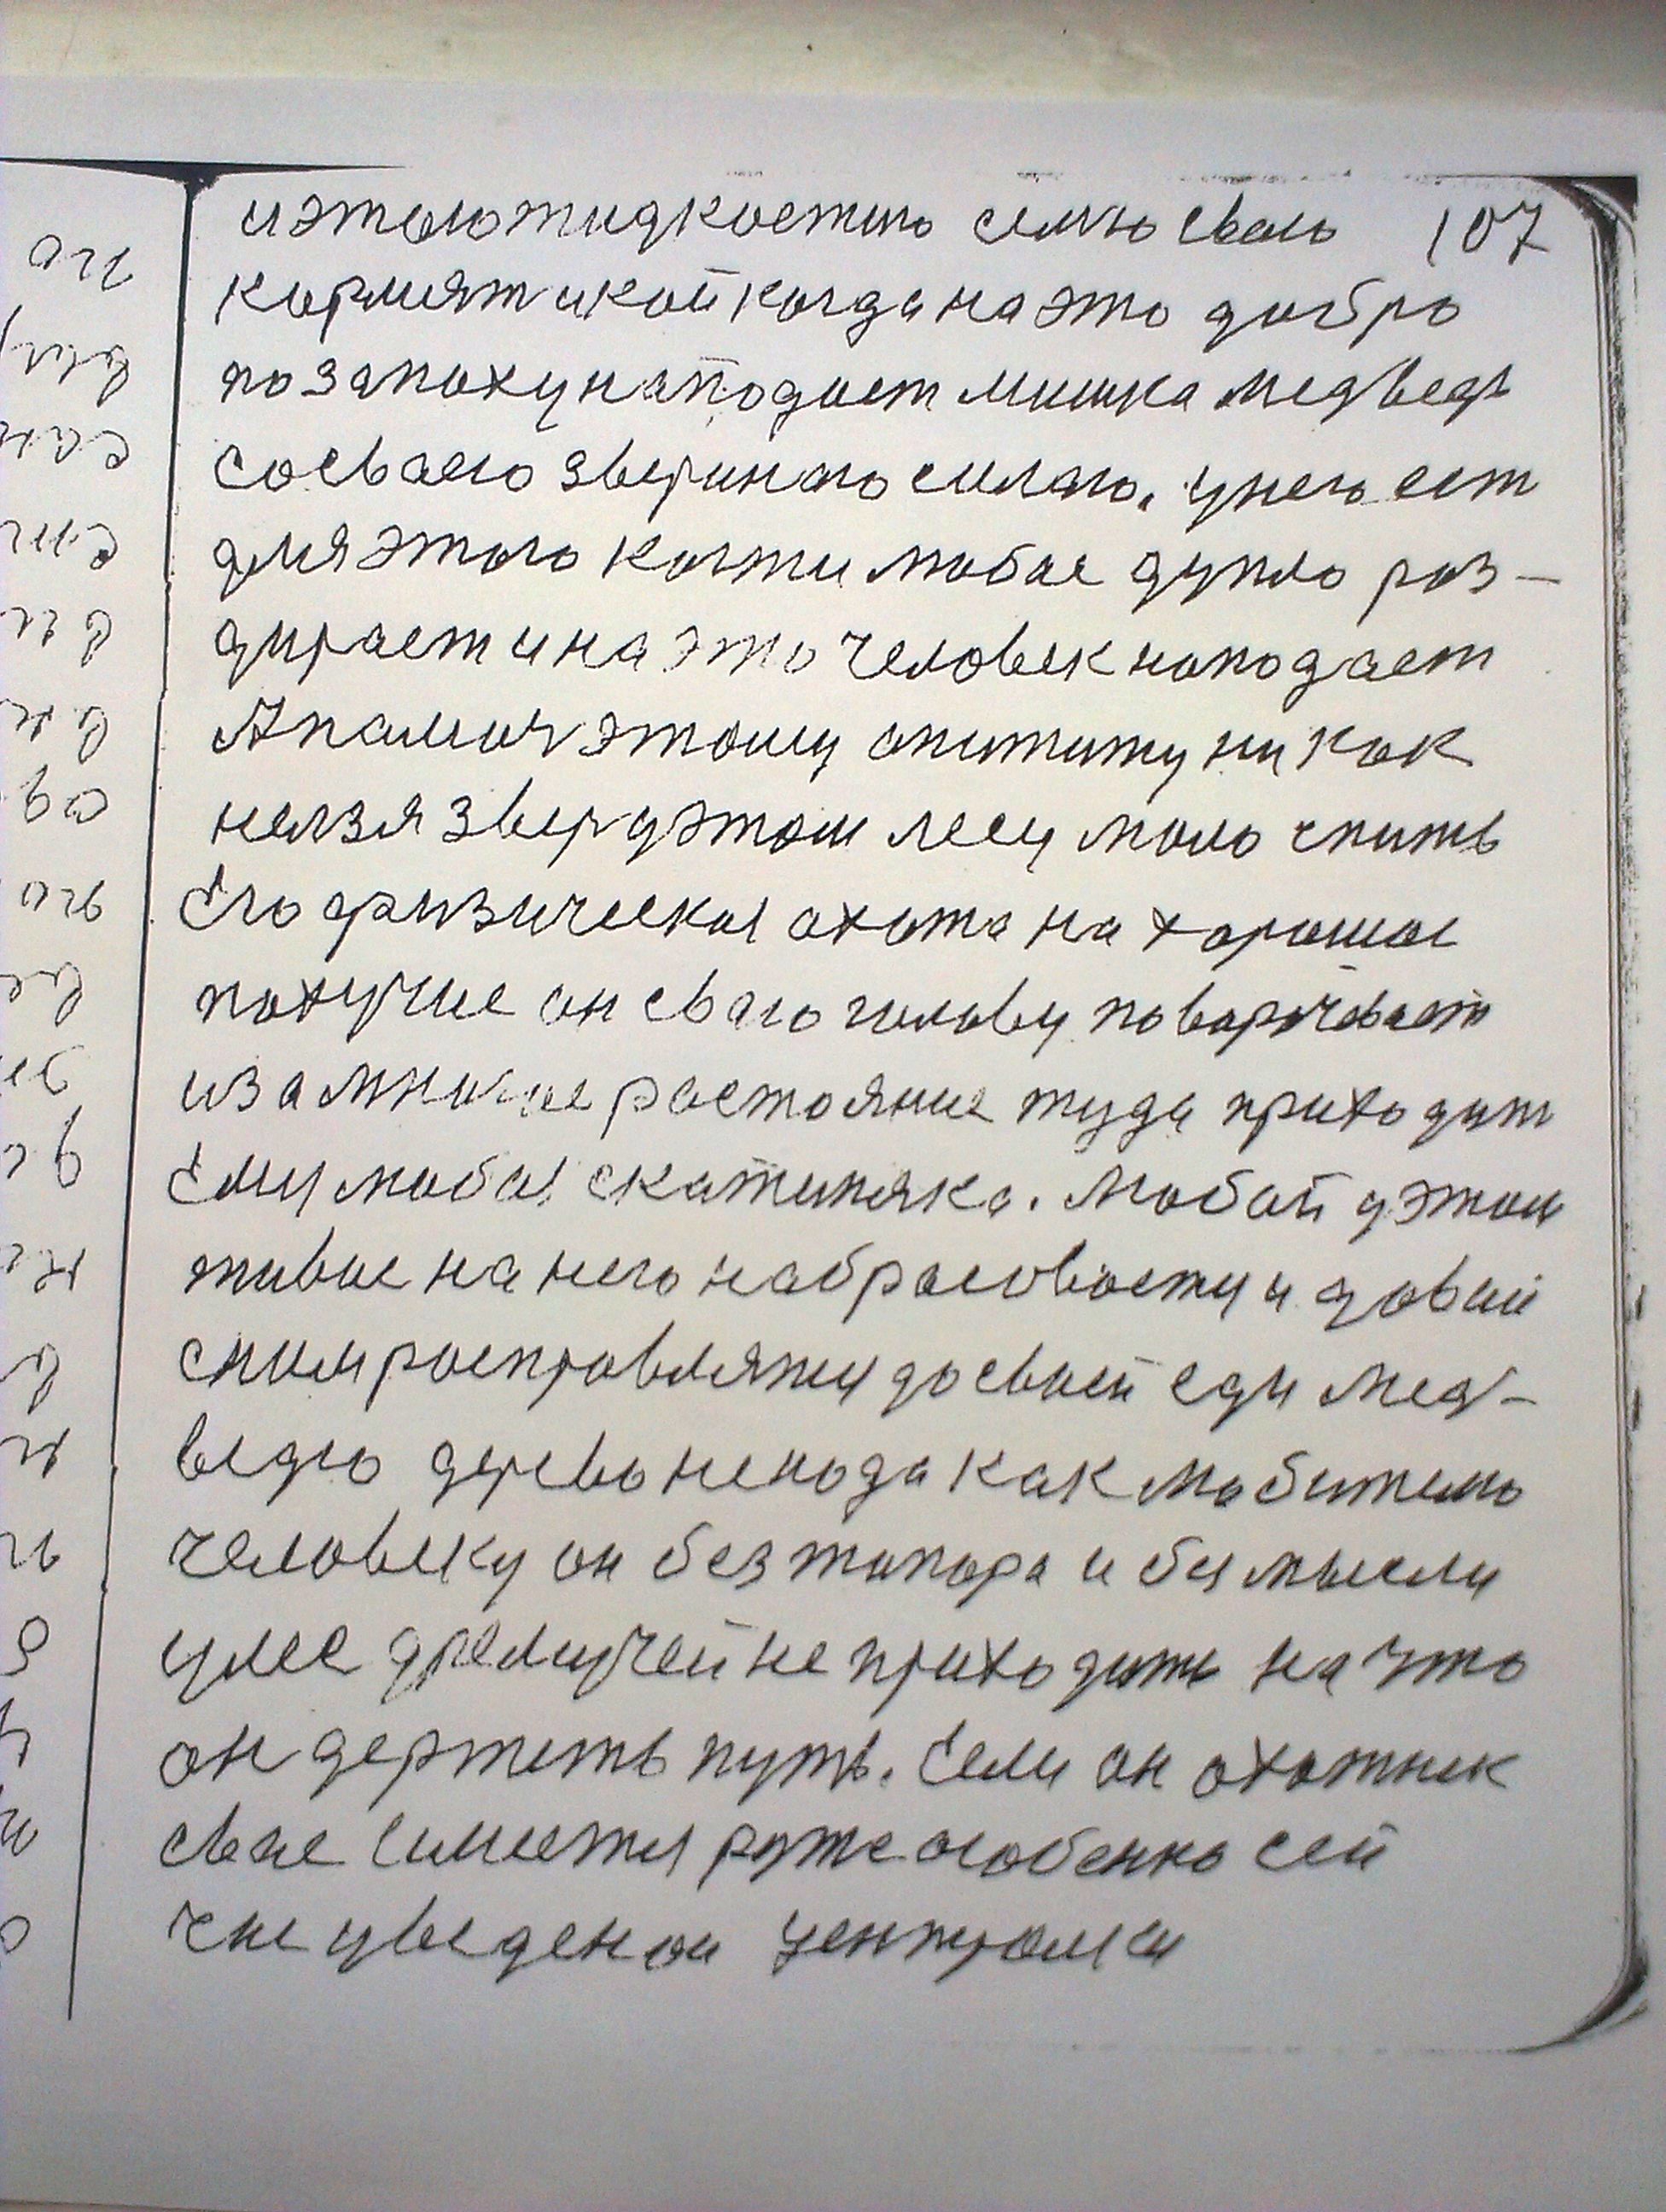 иэтою жидкостию семью сваю 107
кормят икой когда на это добро
по запаху нападает мишка медведь
со сваею звериною силаю. унего ест
для этого когти любое дупло роз-
дирает и на это человек нападает
Апамоч этому апититу ни как
нелзя звер уэтом лесу мало спить
Его физическая охота на хорошое
пахучие он сваю голову поворачивает
иза многие растояние туда приходит
Ему любая скатиняка. Любой уэтом
живое на него набрасоваету и довай
сним росправляту до своей еди мед-
ведю дерево ненада как любителю
человеку он без топора и без мысли
улес дремучей не приходить на что
он держить путь. Если он охотник
свне имеетя руже особенно сей
час уведеном централки